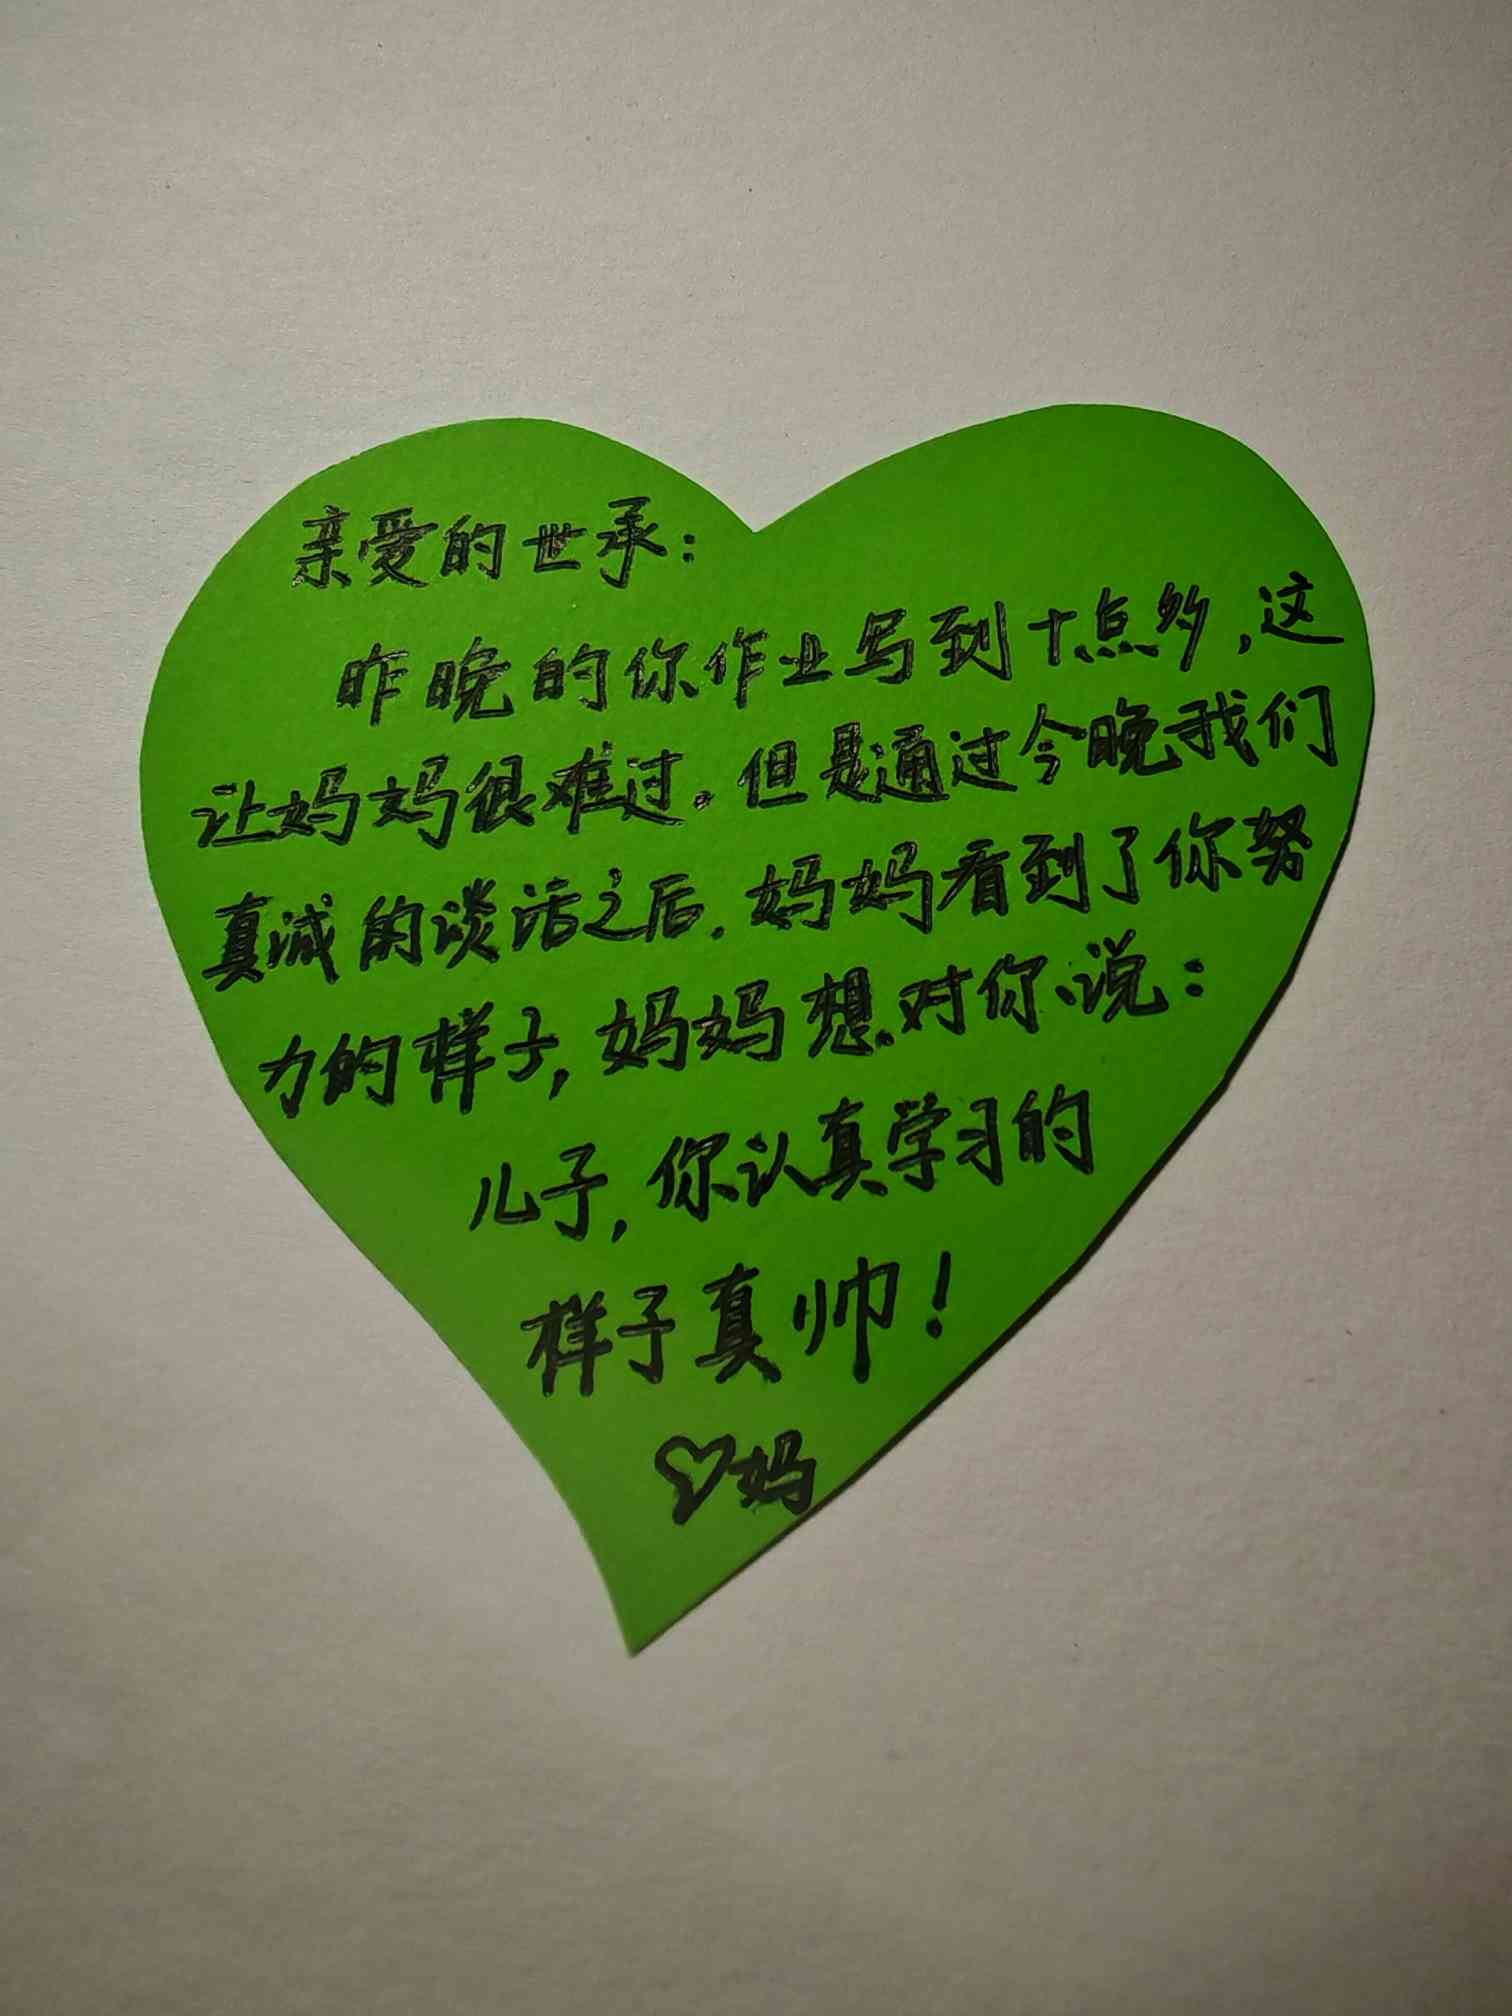 亲爱的世承：
昨晚的你作业写到十点多，这
让妈妈很难过。但是通过今晚我们
真诚的谈话之后，妈妈看到了你努
力的样子，妈妈想对你说：
儿子，你认真学习的
样子真帅！
♡妈